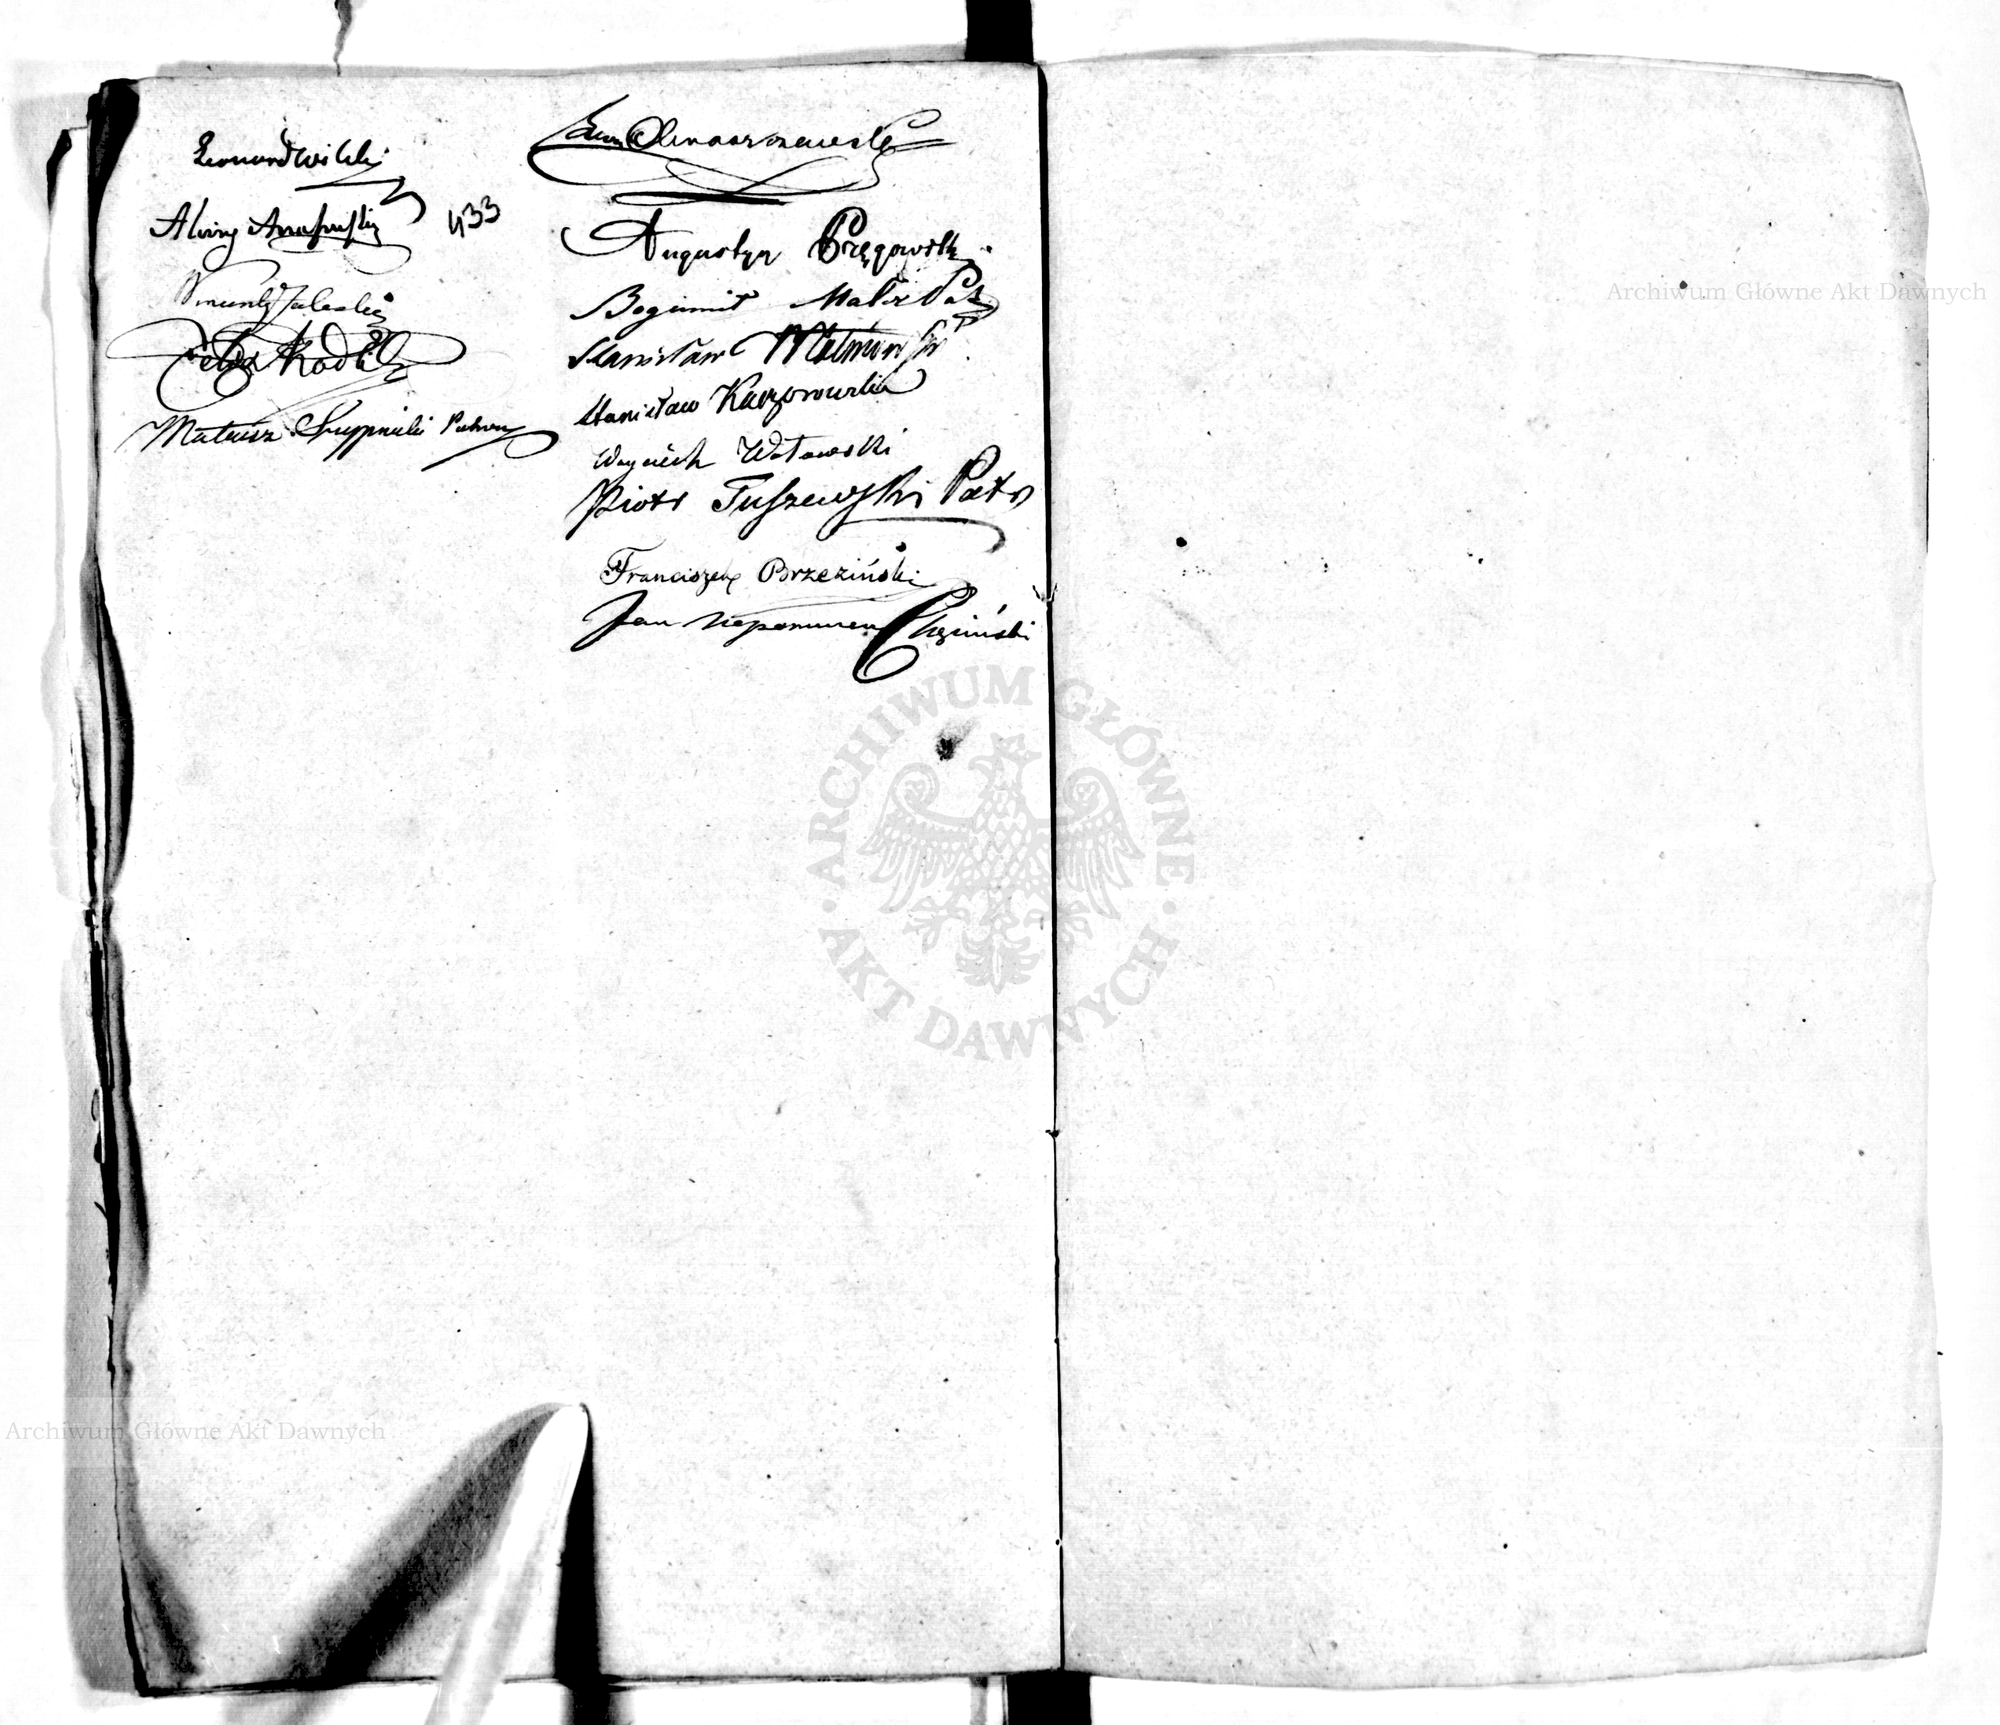 Leonard Wilski
Aloizy
433
Wincenty Zaleski
Felix
Mateusz Skupnieski Patron
Augustyn Pręgowski
Bogumił Patr
Stanisław
Stanisław Kaczorowski
Woyciech Wotowski
Piotr Tuszewski Patr
Franciszek Brzeziński
Jan Nepomucen Chęciński
ARCHIWUM GŁÓWNE
AKT DAWNYCH
Archiwum Główne Akt Dawnych
Archiwum Główne Akt Dawnych